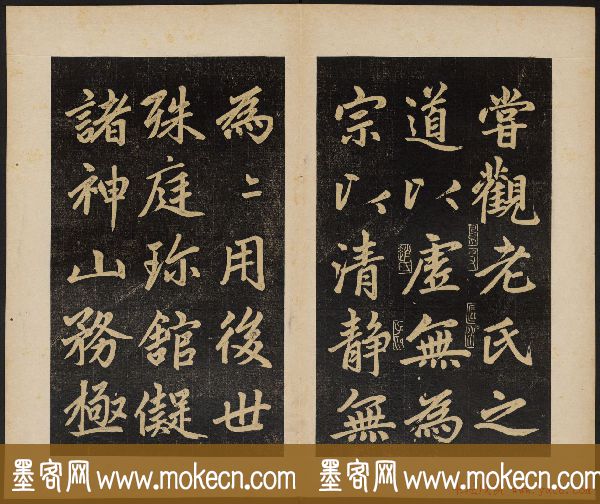 嘗觀老氏之
道以虛無為
宗以清静無
為〻用後世
殊庭珎舘儗
諸神山務極
墨客网 www.mokecn.com
墨客网 www.mokecn.com